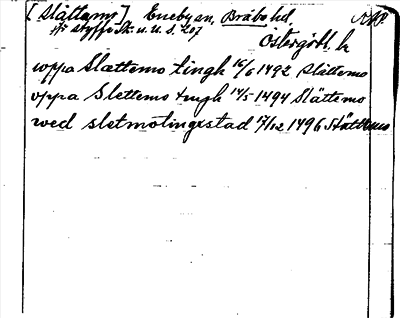 [Slättemo] Eneby sn, Bråbo hd, RAP.
jfr Styffe Sk. u. U. S. 207
Östergötl. l.
uppa Slættemo tingh 16/6 1492 Slättemo
oppa Slettemo tingh 14/5 1494 Slättemo
wed sletmotingxstad 17/12 1496 Slättemo